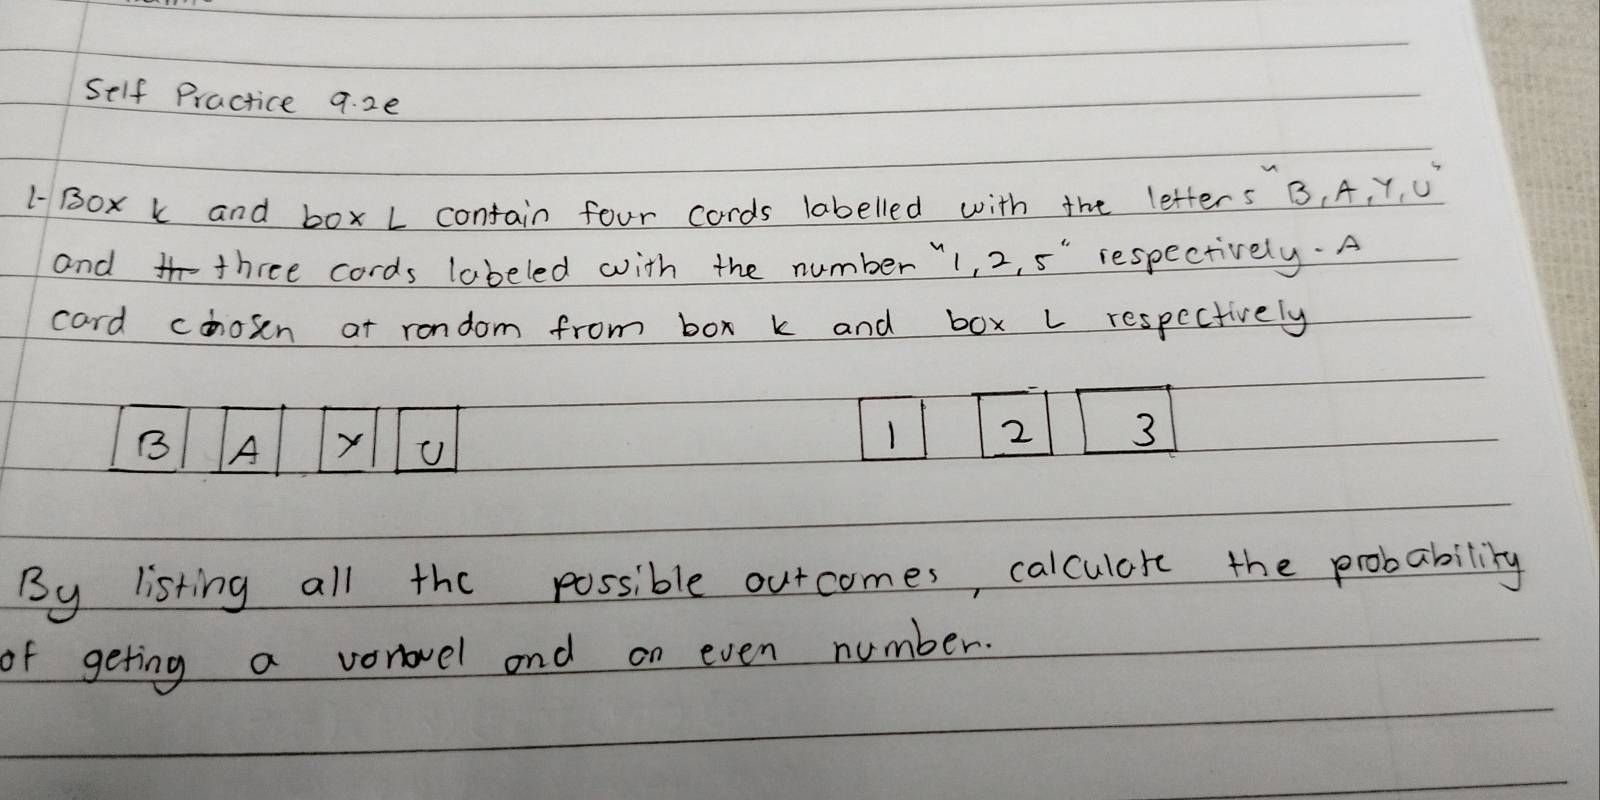 Self Practice 9.2e
1- Box K and box L contain four cards labelled with the letters "B, A, Y, U"
and three cards labeled with the number "1, 2, 5" respectively. A
card chosen at random from box K and box L respectively
B A Y U 1 2 3
By listing all the possible outcomes, calculate the probability
of geting a vowel and an even number.